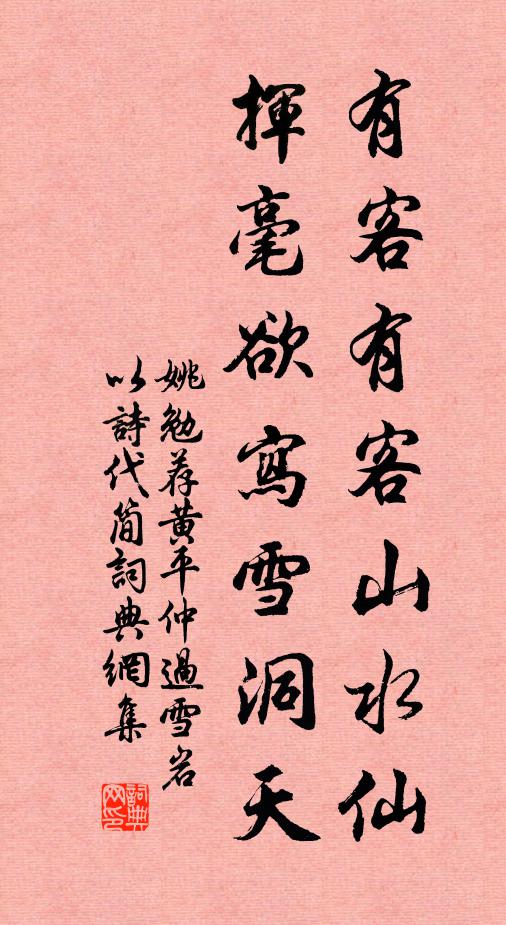 有客有客山水仙
揮毫欲寫雪洞天
姚勉荐黄平仲過雪岩
以詩代简詞典網集
詞典网印